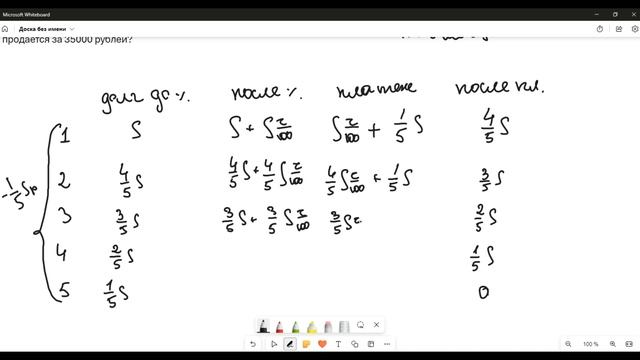 Microsoft Whiteboard
Доска без имени
продается за 35000 рублей?
долг до %. после %. платеж после пл.
1 S S + S r/100 S r/100 + 1/5 S 4/5 S
2 4/5 S 4/5 S + 4/5 S r/100 4/5 S r/100 + 1/5 S 3/5 S
3 3/5 S 3/5 S + 3/5 S r/100 3/5 S r 2/5 S
4 2/5 S 1/5 S
5 1/5 S 0
- 1/5 S
100 %